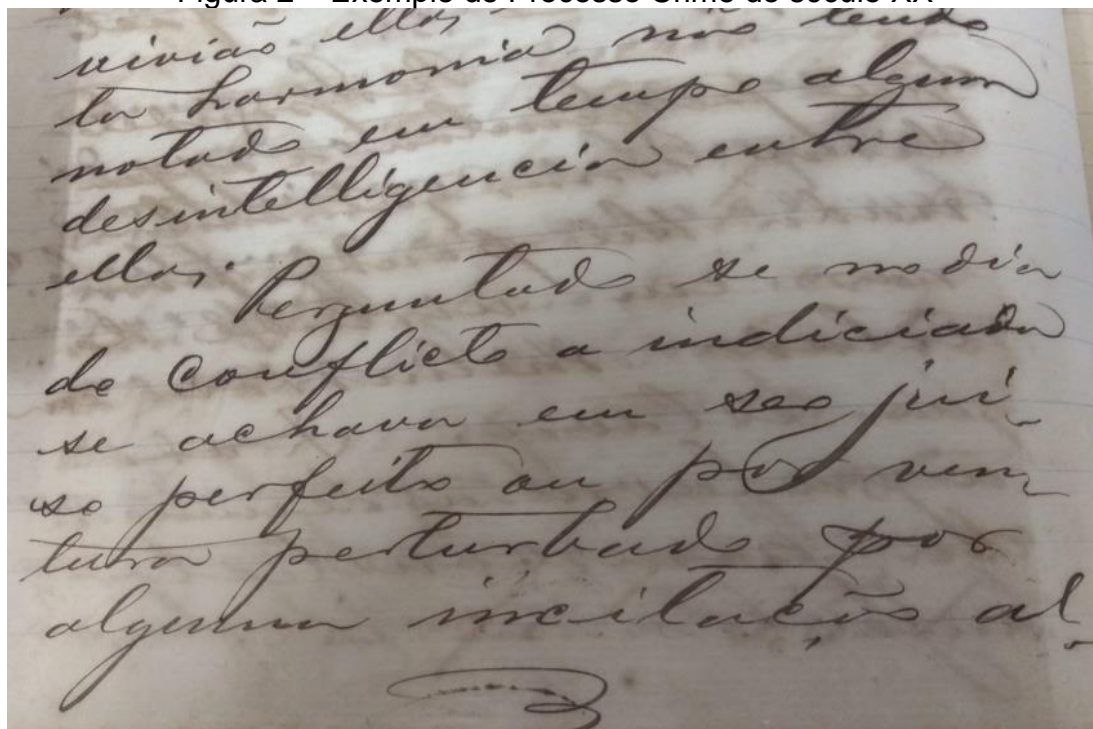 Figura 2 – Exemplo de Processo Crime do século XX
vivião elles
ta harmonia não tendo
notado em tempo algum
desintelligencia entre
elles. Perguntado se no dia
do conflicto a indiciada
se achava em seo jui-
so perfeito ou por ven-
tura perturbado por
alguma incitação al-